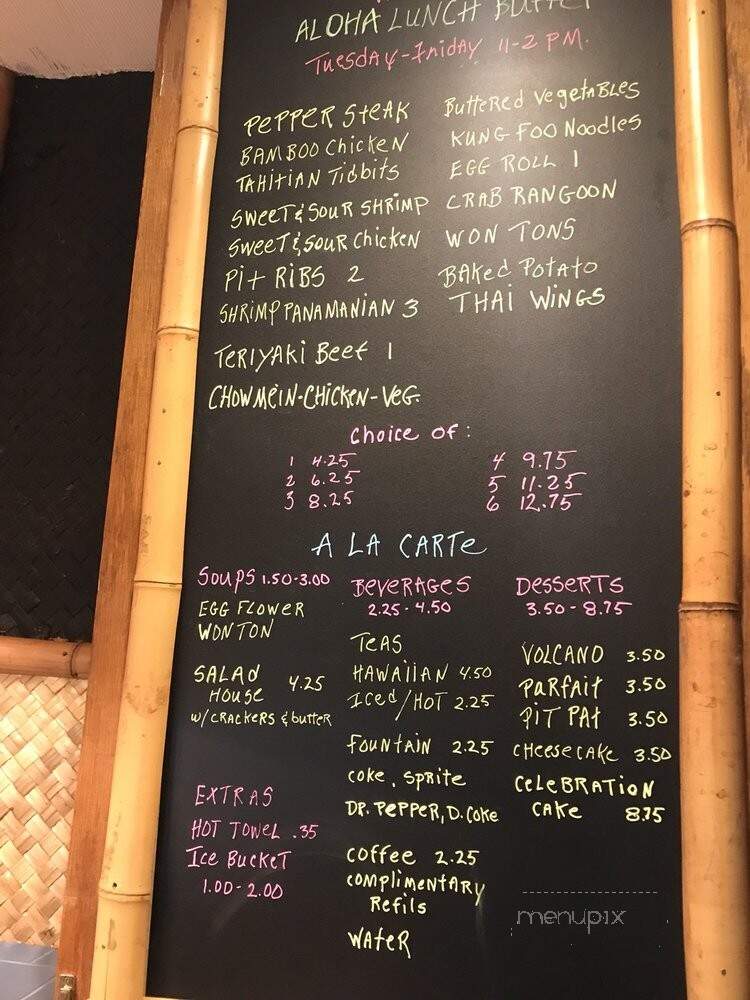 ALOHA LUNCH BUFFET
TUESDAY-FRIDAY 11-2 PM.
PEPPER STEAK
BAMBOO CHICKEN
TAHITIAN TIDBITS
SWEET & SOUR SHRIMP
SWEET & SOUR CHICKEN
PIT RIBS 2
SHRIMP PANAMANIAN 3
TERIYAKI BEEF 1
CHOWMEIN-CHICKEN-VEG.
BUTTERED VEGETABLES
KUNG FOO NOODLES
EGG ROLL 1
CRAB RANGOON
WON TONS
BAKED POTATO
THAI WINGS
CHOICE OF:
1 4.25
2 6.25
3 8.25
4 9.75
5 11.25
6 12.75
A LA CARTE
SOUPS 1.50-3.00
EGG FLOWER
WONTON
SALAD
HOUSE 4.25
W/CRACKERS & BUTTER
EXTRAS
HOT TOWEL .35
ICE BUCKET
1.00-2.00
BEVERAGES
2.25-4.50
TEAS
HAWAIIAN 4.50
ICED/HOT 2.25
FOUNTAIN 2.25
COKE, SPRITE
DR. PEPPER, D. COKE
COFFEE 2.25
COMPLIMENTARY
REFILS
WATER
DESSERTS
3.50-8.75
VOLCANO 3.50
PARFAIT 3.50
PIT PAT 3.50
CHEESECAKE 3.50
CELEBRATION
CAKE 8.75
menupix